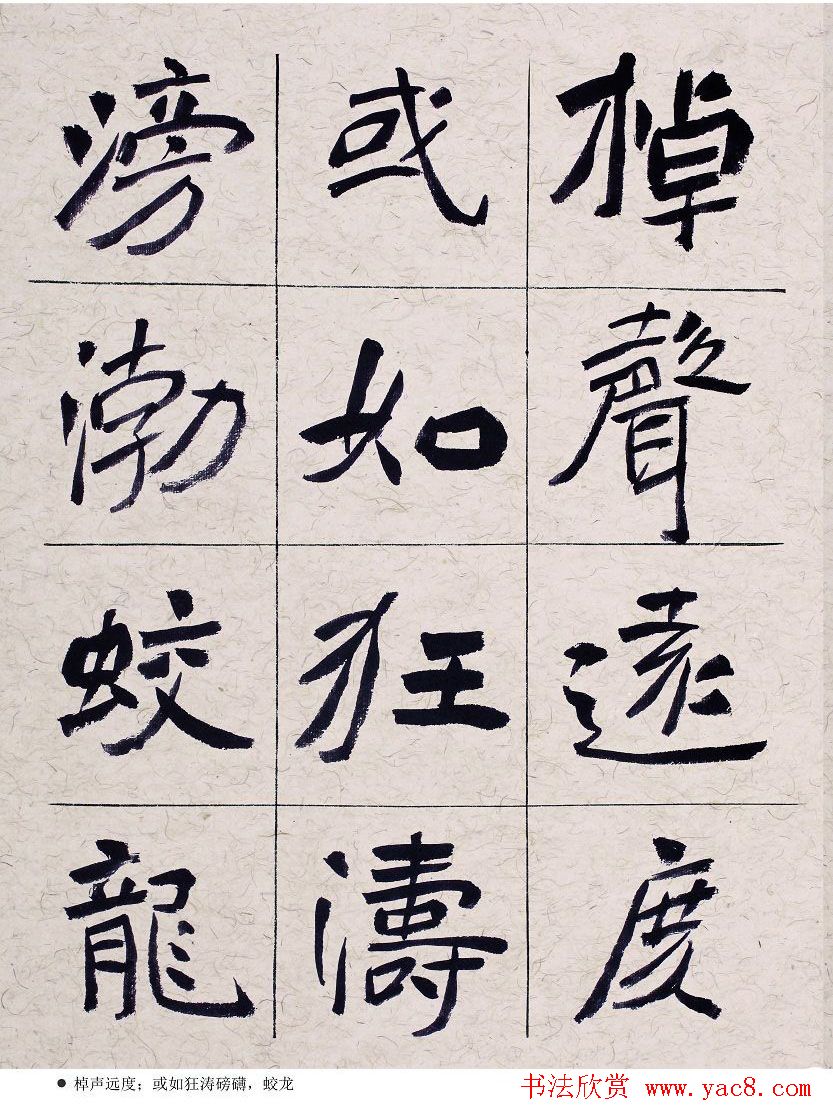 棹聲遠度
或如狂濤
滂渤蛟龍
● 棹声远度；或如狂涛磅礴，蛟龙
书法欣赏 www.yac8.com